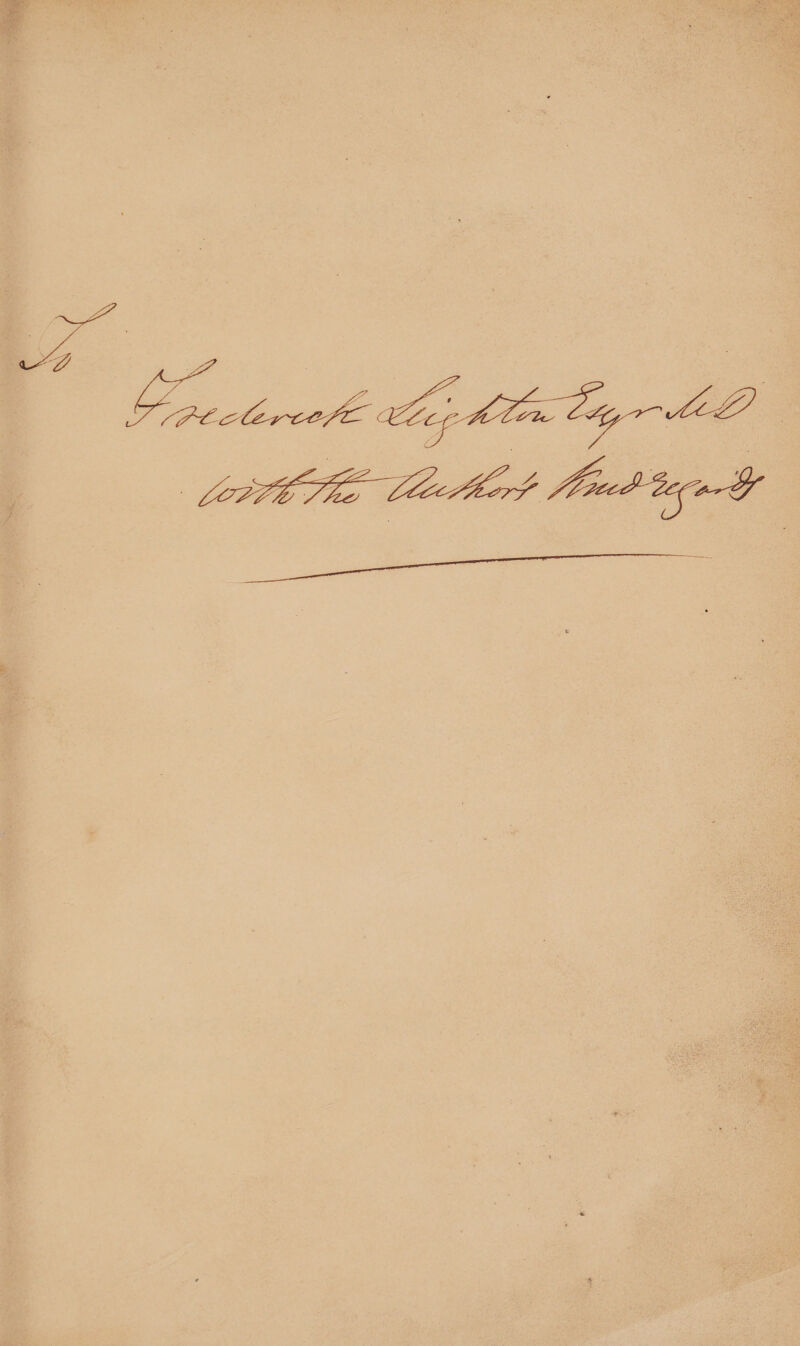 To
Frederick Leighton Esqr MD
with the Author's Kind regards